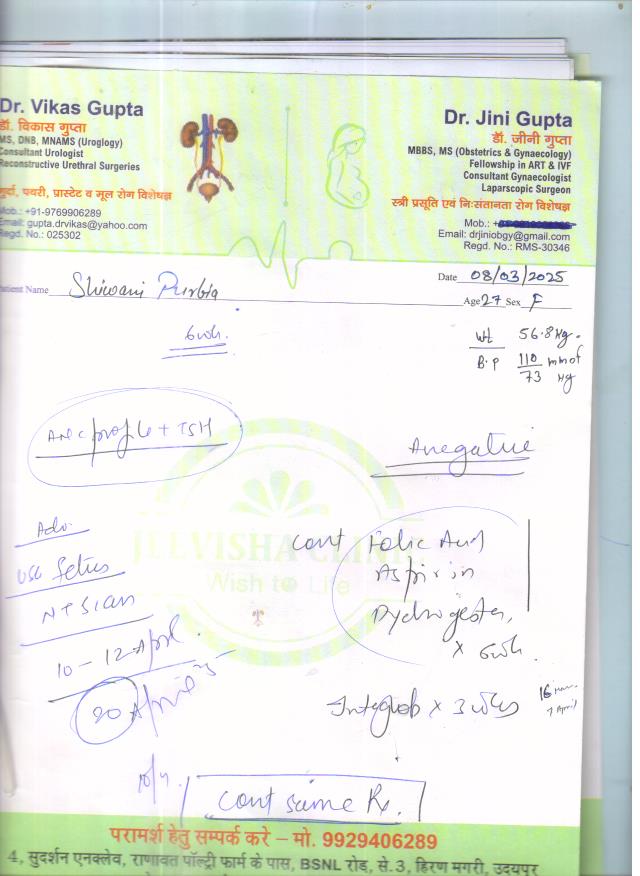 Dr. Vikas Gupta
डॉ. विकास गुप्ता
MS, DNB, MNAMS (Uroglogy)
Consultant Urologist
Reconstructive Urethral Surgeries
गुर्दा, पथरी, प्रास्टेट व मूत्र रोग विशेषज्ञ
Mob.: +91-9769906289
Email: gupta.drvikas@yahoo.com
Regd. No.: 025302
Dr. Jini Gupta
डॅा. जीनी गुप्ता
MBBS, MS (Obstetrics & Gynaecology)
Fellowship in ART & IVF
Consultant Gynaecologist
Laparscopic Surgeon
स्त्री प्रसूति एवं निःसंतानता रोग विशेषज्ञ
Mob.:
Email: drjiniobgy@gmail.com
Regd. No.: RMS-30346
Date 08/03/2025
Patient Name Shiwani Purbia
Age 27 Sex F
6wk.
Wt 56.8 Kg.
B.P 110/73 mmof Hg
ANC profile + TSH
A negative
JELVISHA CLINIC
Wish to Life
Adv.
USG Fetus
NT Scan
10-12 April.
20 April 25
cont Folic Acid
Aspirin
Dydrogester,
x 6wk.
x 3 wks
7 April
10/4
Cont same Rx.
परामर्श हेतु सम्पर्क करे – मो. 9929406289
4, सुदर्शन एनक्लेव, राणावत पॉल्ट्री फार्म के पास, BSNL रोड, से. 3, हिरण मगरी, उदयपुर